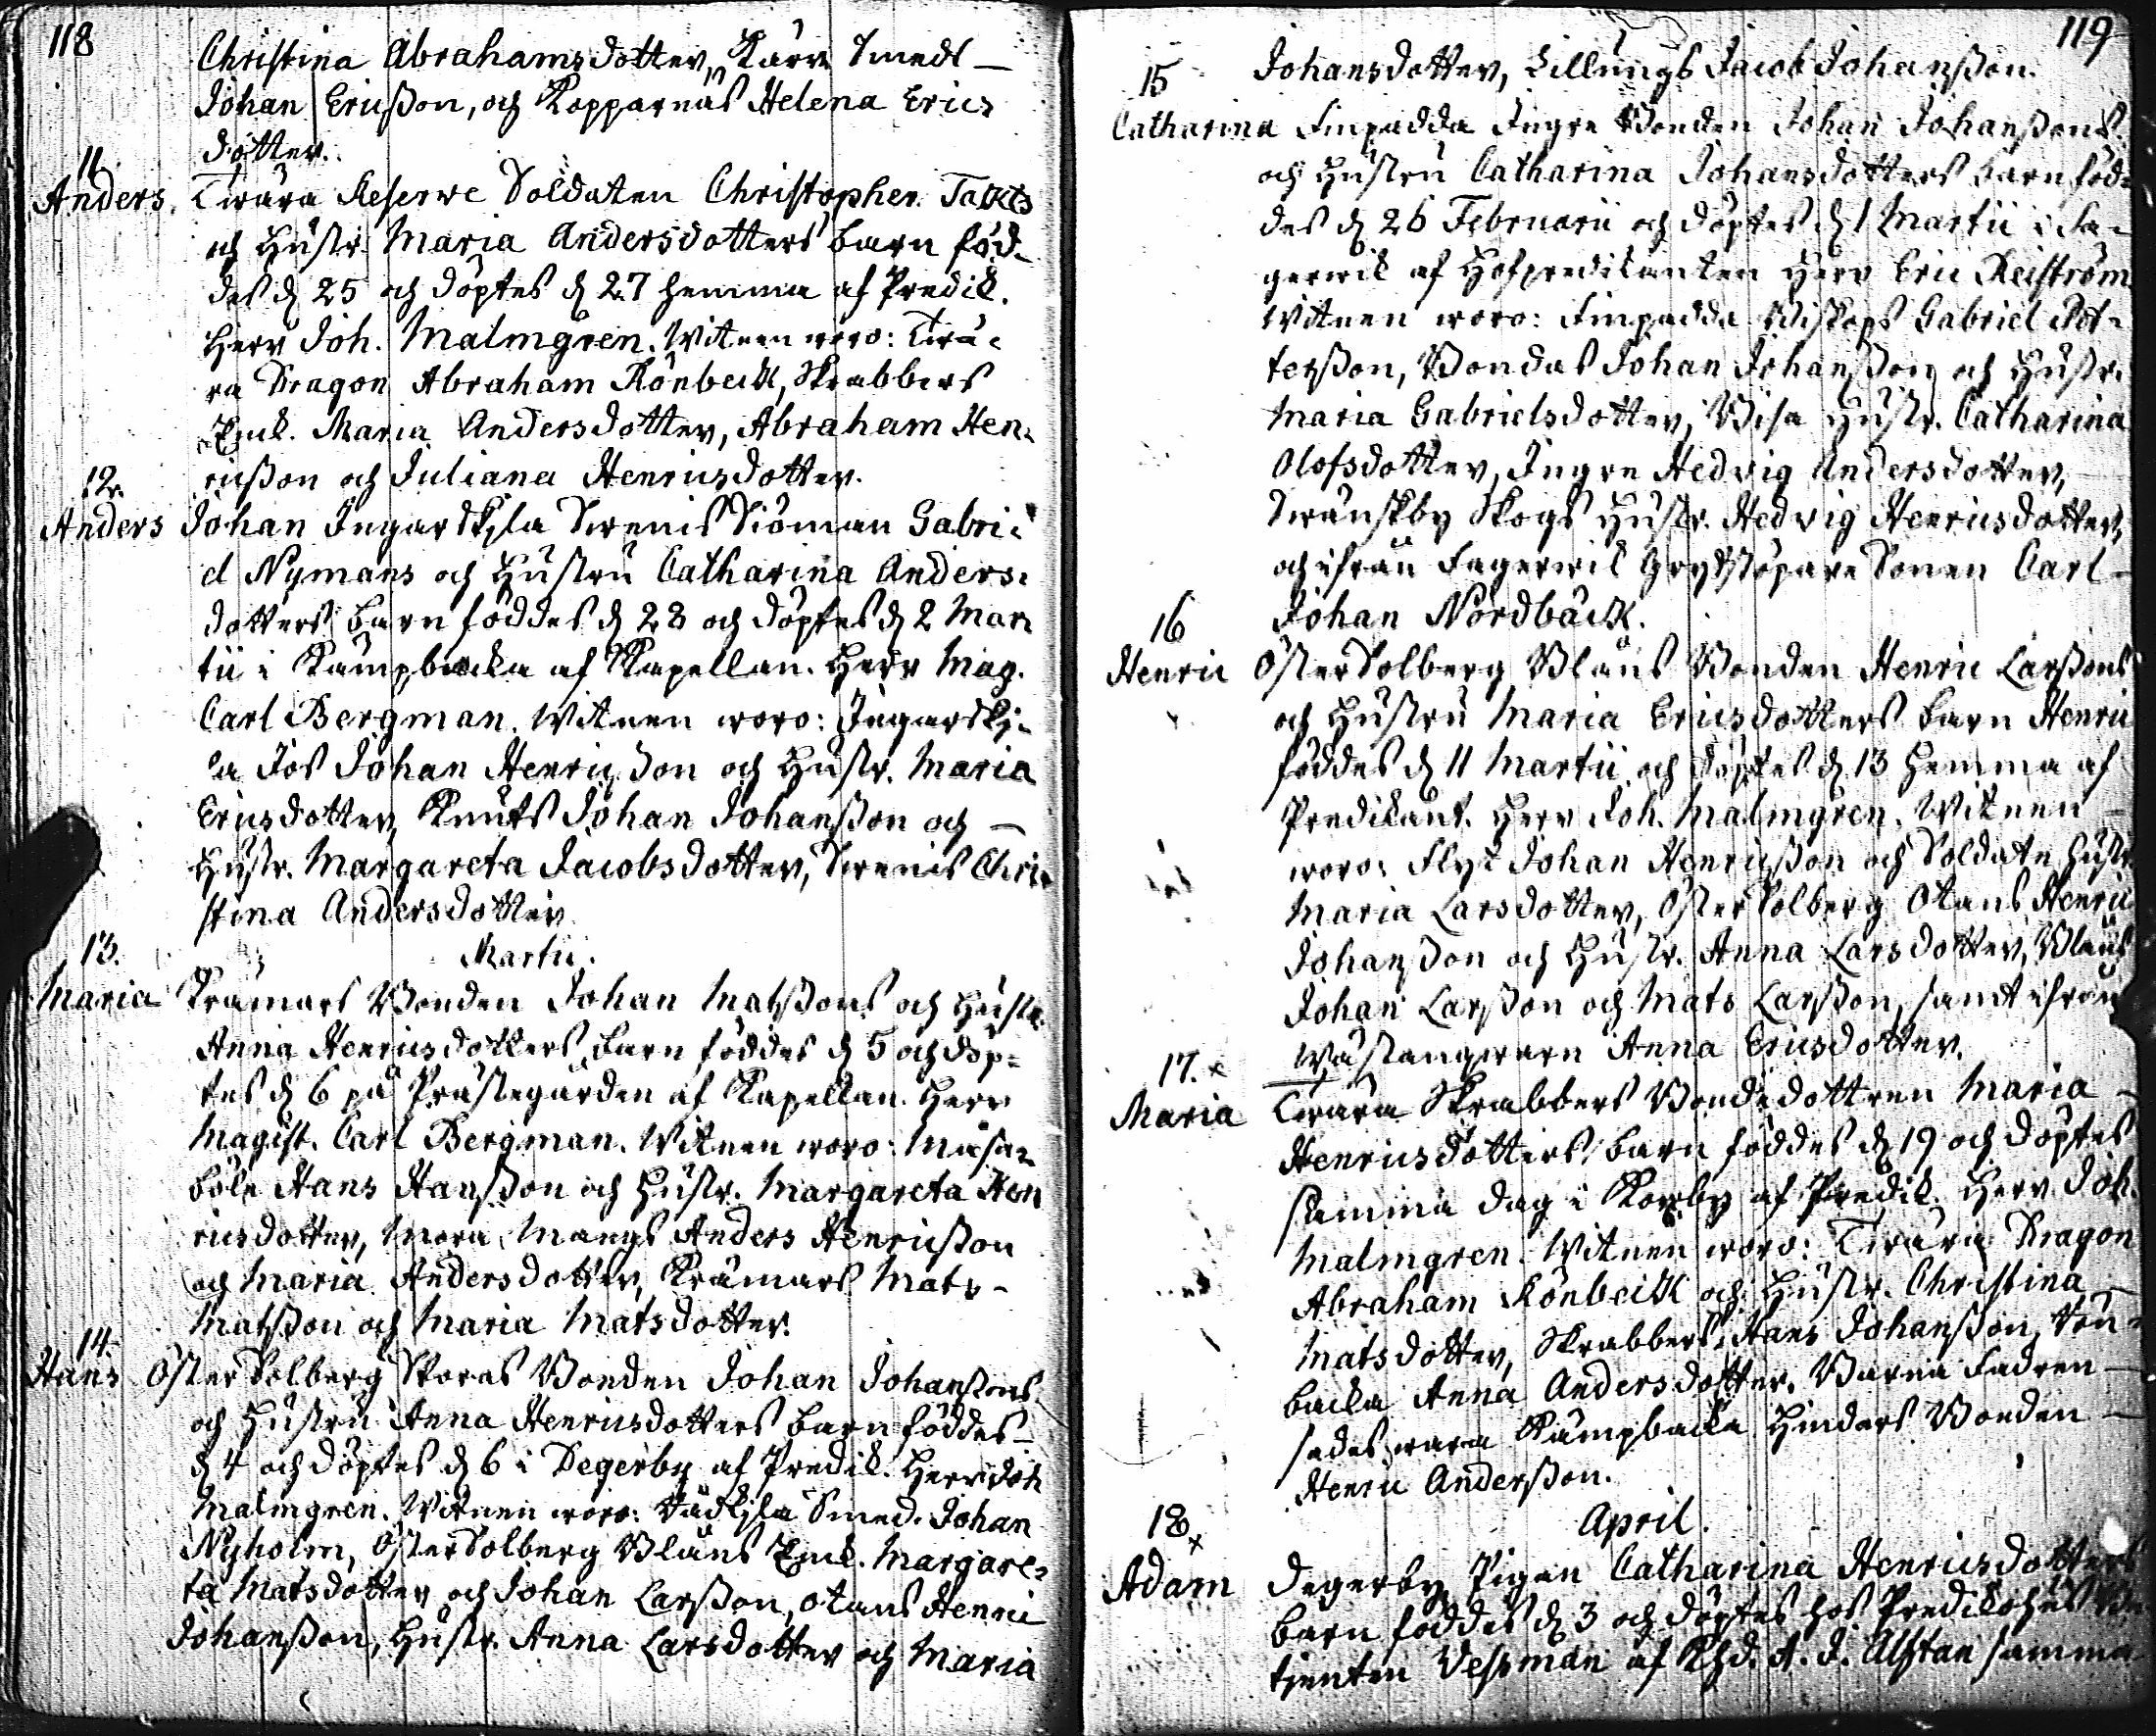 118
Christina Abrahamsdotter, Kärr Smeds
Johan Ericsson, och Kopparnäs Helena Erics
dotter.
11.
Anders. Twära Reserve Soldaten Christopher
och Hustr. Maria Andersdotters barn föd-
des d. 25 och döptes d. 27 hemma af Predik.
Herr Joh. Malmgren. Witnen woro: Twä-
ra Dragon Abraham Rönbeck, Skrabbers
Enk. Maria Andersdotter, Abraham Hen-
ricsson och Juliana Henricsdotter.
12.
Anders Johan Ingarskyla Swenis Sióman Gabri-
el Nymans och Hustru Catharina Anders-
dotters barn föddes d. 28 och döptes d. 2 Mar
tii i Kampbacka af Kapellan. Herr Mag.
Carl Bergman. Witnen woro: Ingarsky-
la Jos Johan Henricsson och Hustr. Maria
Ericsdotter, Knuts Johan Johansson och
Hustr. Margareta Jacobsdotter, Swenis Chri-
stina Andersdotter.
Martii.
13.
Maria Krämars Bonden Johan Matssons och Hustr.
Anna Henricsdotters barn föddes d. 5 och döp-
tes d. 6 på Prästegården af Kapellan. Herr
Magist. Carl Bergman. Witnen woro: Måsa-
böle Hans Hansson och Hustr. Margareta Hen
ricsdotter, Mora Mangs Anders Henricsson
och Maria Andersdotter, Krämars Mats
Matsson och Maria Matsdotter.
14.
Hans Öster Solberg Storas Bonden Johan Johanssons
och Hustru Anna Henricsdotters barn föddes
d. 4 och döptes d. 6 i Degerby af Predik. Herr Joh
Malmgren. Witnen woro: Smed. Johan
Nyholm, Öster Solberg Bläus Enk. Margare-
ta Matsdotter och Johan Larsson, Otans Henric
Johansson, Hustr. Anna Larsdotter och Maria
119
Johansdotter, Lillungs Jacob Johansson.
15
Catharina Finpadda Ingre Bonden Johan Johanssons
och Hustru Catharina Johansdotters barn föd-
des d. 26 Februarii och döptes d. 1 Martii i Fa-
gerwik af Hofpredikanten Herr Eric Reiström
Witnen woro: Finpadda Biskops Gabriel Pet-
tersson, Bondas Johan Johansson och Hustr.
Maria Gabrielsdotter, Wisa Hustr. Catharina
Olofsdotter, Ingre Hedvig Andersdotter,
Swänskby Skogs Hustr. Hedvig Henricsdotter,
och ifrån Fagerwik Grytstöpare Sonen Carl
Johan Nordbäck.
16
Henric Öster Solberg Blåus Bonden Henric Larssons
och Hustru Maria Ericsdotters barn Henric
föddes d. 11 Martii och döptes d. 13 hemma af
Predikant. Herr Joh. Malmgren. Witnen
woro: Flyt Johan Henricsson och Soldate hustr.
Maria Larsdotter, Öster Solberg Otans Henric
Johansson och Hustr. Anna Larsdotter, Blåus
Johan Larsson och Mats Larsson, samt ifrån
Anna Ericsdotter.
17. x
Maria Twära Skrabbers Bondedottren Maria
Henricsdotters barn föddes d. 19 och döptes
samma dag i Kopby af Predik. Herr Joh.
Malmgren. Witnen woro: Twära Dragon
Abraham Rönbeck och Hustr. Christina
Matsdotter, Skrabbers Hans Johansson,
backa Anna Andersdotter. Barna Fadren
sades wara Kämpbacka Hindars Bonden
Henric Andersson.
April.
18 x
Adam Degerby Pigan Catharina Henricsdotters
barn föddes d. 3 och döptes hos
tjenten Vesman af Khd. A. J. Alftan samma